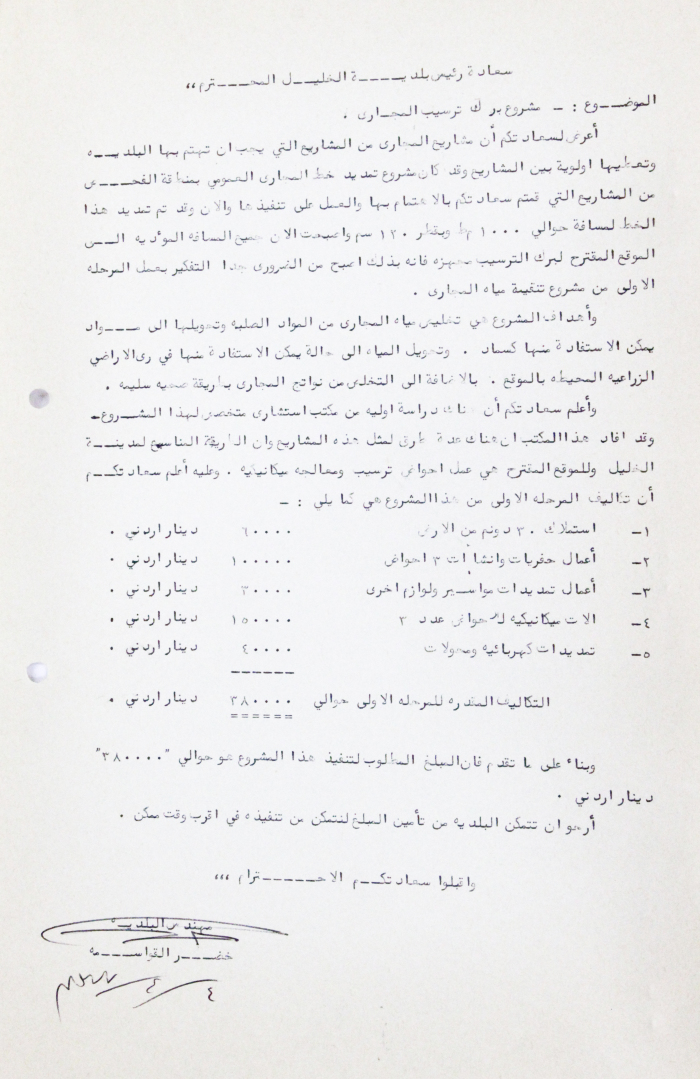 سعادة رئيس بلديـــة الخليـــل المحـــترم ،،
الموضـــوع : - مشروع برك ترسيب المجارى .
أعرض لسعادتكم أن مشاريع المجارى من المشاريع التي يجب ان تهتم بها البلديـــه
وتعطيها اولوية بين المشاريع وقد كان مشروع تمديد خط المجارى العمومي بمنطقة الفحـــص
من المشاريع التي قمتم سعادتكم بالاهتمام بها والعمل على تنفيذها والان وقد تم تمديد هذا
الخط لمسافة حوالي ١٠٠٠ م ط وبقطر ١٢٠ سم واصبحت الان جميع المسافه المؤديه الـــى
الموقع المقترح لبرك الترسيب مجهزه فانه بذلك اصبح من الضرورى جدا التفكير بعمل المرحله
الاولى من مشروع تنقية مياه المجارى .
وأهداف المشروع هي تخليص مياه المجارى من المواد الصلبه وتحويلها الى مـــواد
يمكن الاستفادة منها كسماد . وتحويل المياه الى حالة يمكن الاستفادة منها في رى الاراضي
الزراعيه المحيطه بالموقع . بالاضافة الى التخلص من نواتج المجارى بطريقة صحيه سليمه .
وأعلم سعادتكم أن هناك دراسة اوليه من مكتب استشارى متخصص لهذا المشـــروع-
وقد افاد هذا المكتب ان هناك عدة طرق لمثل هذه المشاريع وان الطريقة المناسبه لمدينـــة
الخليل وللموقع المقترح هي عمل احواض ترسيب ومعالجه ميكانيكيه . وعليه أعلم سعادتكـــم
أن تكاليف المرحله الاولى من هذا المشروع هي كما يلي : -
١- استملاك ٣٠ دونم من الارض ٦٠٠٠٠ دينار اردني .
٢- أعمال حفريات وانشاءات ٣ احواض ١٠٠٠٠٠ دينار اردني .
٣- أعمال تمديدات مواسير ولوازم اخرى ٣٠٠٠٠ دينار اردني .
٤- الات ميكانيكيه للاحواض عدد ٣ ١٥٠٠٠٠ دينار اردني .
٥- تمديدات كهربائيه ومحولات ٤٠٠٠٠ دينار اردني .
التكاليف المقدره للمرحله الاولى حوالي ٣٨٠٠٠٠ دينار اردني .
وبناء على ما تقدم فان المبلغ المطلوب لتنفيذ هذا المشروع هو حوالي "٣٨٠٠٠٠"
دينار اردني .
أرجو ان تتمكن البلديه من تأمين المبلغ لنتمكن من تنفيذه في اقرب وقت ممكن .
واقبلوا سعادتكـــم الاحـــترام ،،،
مهندس البلديـــه
خضـــر القواســـمه